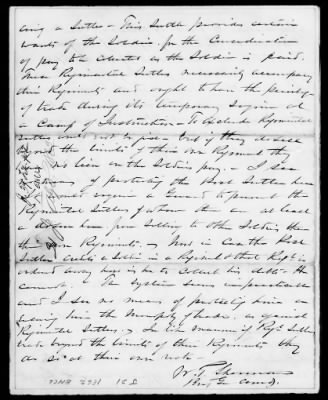 ting a Sutler - This Sutler provides certain
wants of the Soldier for the Consideration
of pay to be collected as the Soldier is paid.
These Regimental Sutlers necessarily accompany
their Regiments and ought to have the privilege
of trade during its temporary Sojourn at
a Camp of Instruction - To exclude Regimental
Sutlers would not be just - but if they do sell
beyond the limits of their own Regiment they
have no lien on the Soldiers pay. - I see
no means of protecting the Post Sutler here
would require a Guard to prevent the
Regimental Sutlers of whom there are at least
a dozen here from selling to other Soldiers than
their own Regiments. - Now in Case the Post
Sutler Credits a Soldier in a Regiment & that Regt is
ordered away how is he to Collect his debt - He
cannot. The system seems impracticable
and I see no means of protecting him or
giving him the Monopoly of trade, as against
Regimental Sutlers. - In like manner if Regt Sutlers
trade beyond the limits of their Regiments they
do so at their own risk -
W. T. Sherman
Brig Gn Comdg.